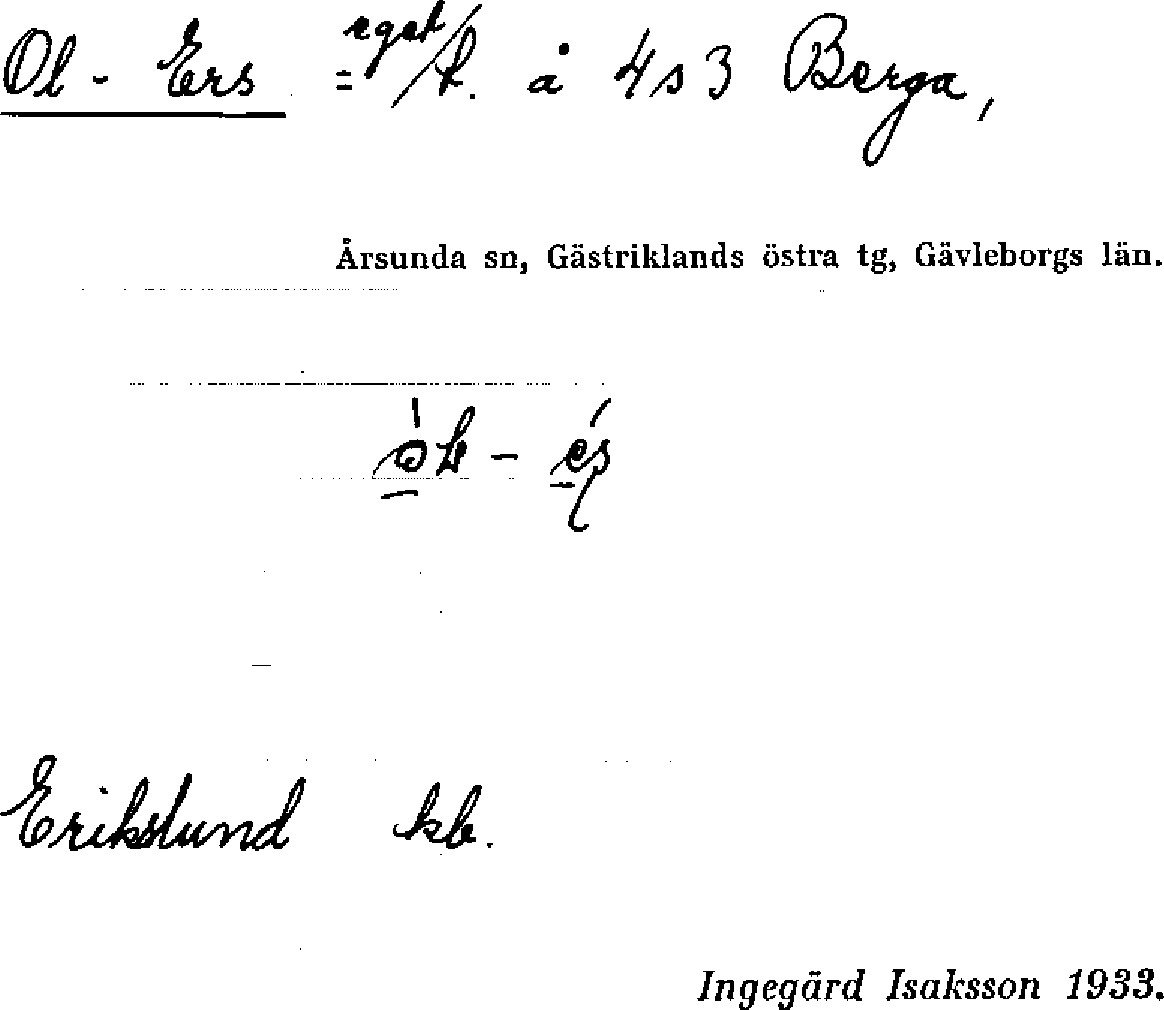 Ol-Ers = eget/f. å 4s3 Berga,
Årsunda sn, Gästriklands östra tg, Gävleborgs län.
Erikslund kb.
Ingegärd Isaksson 1933.